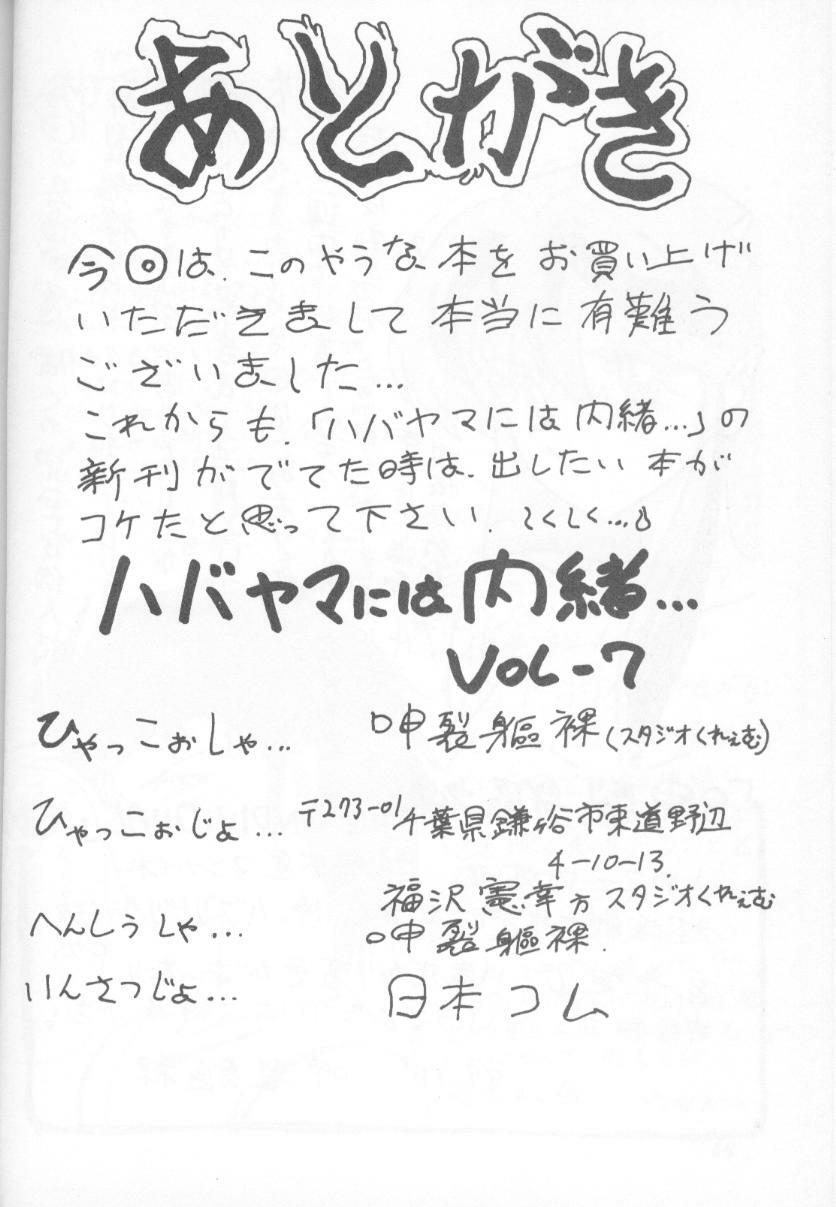 あとがき
今回は、このやうな本をお買い上げ
いただきまして本当に有難う
ございました…
これからも、「ハバヤマには内緒…」の
新刊がでてた時は、出したい本が
コケたと思って下さい、しくしく…
ハバヤマには内緒…
VOL-7
ひゃっこぉしゃ… 呻裂躯裸(スタジオくれえむ)
ひゃっこぉじょ… 〒273-01千葉県鎌ヶ谷市東道野辺
4-10-13.
福沢憲幸方スタジオくれえむ
へんしうしゃ… 呻裂躯裸.
いんさつじょ… 日本コム